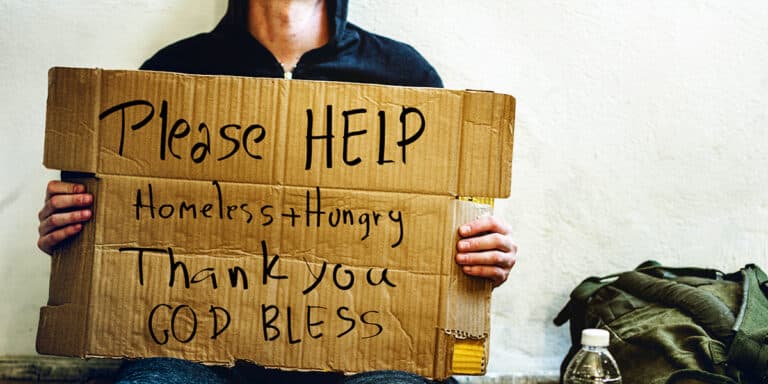 Please HELP
Homeless + Hungry
Thank you
GOD BLESS